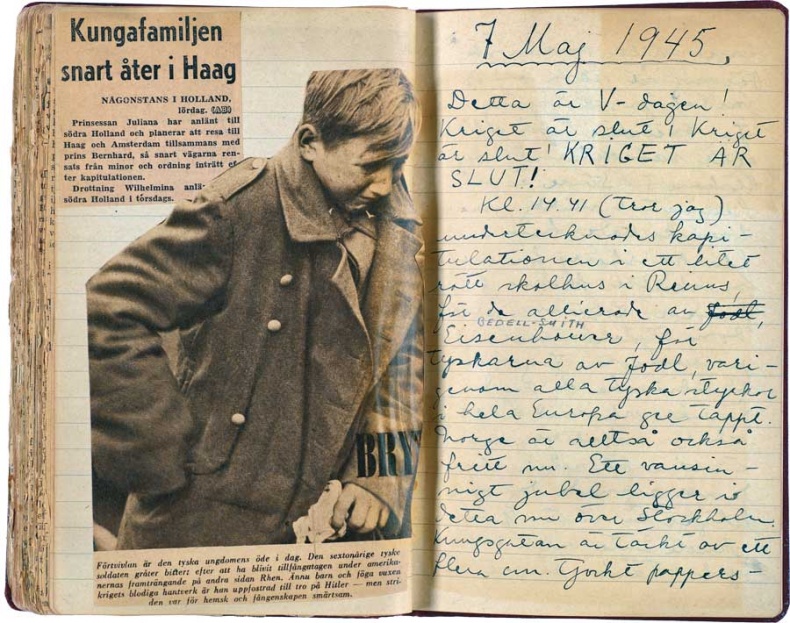 Kungafamiljen
snart åter i Haag
NÅGONSTANS I HOLLAND,
lördag.
Prinsessan Juliana har anlänt till
södra Holland och planerar att resa till
Haag och Amsterdam tillsammans med
prins Bernhard, så snart vägarna ren-
sats från minor och ordning inträtt ef-
ter kapitulationen.
Drottning Wilhelmina anlä-
södra Holland i torsdags.
BRY
Förtvivlan är den tyska ungdomens öde i dag. Den sextonårige tyske
soldaten gråter bittert efter att ha blivit tillfångatagen under amerika-
nernas framträngande på andra sidan Rhen. Ännu barn och föga vuxen
krigets blodiga hantverk är han uppfostrad till tro på Hitler — men stri-
den var för hemsk och fångenskapen smärtsam.
7 Maj 1945.
Detta är V-dagen!
Kriget är slut! Kriget
är slut! KRIGET ÄR
SLUT!
Kl. 14.41 (tror jag)
undertecknades kapi-
tulationen i ett litet
rött skolhus i Reims,
för de allierade av Jodl,
BEDELL-SMITH
Eisenhower, för
tyskarna av Jodl, vari-
genom alla tyska styrkor
i hela Europa ge tappt.
Norge är alltså också
fritt nu. Ett vansin-
nigt jubel ligger i
detta nu över Stockholm.
Kungsgatan är täckt av ett
flera cm. tjockt pappers-